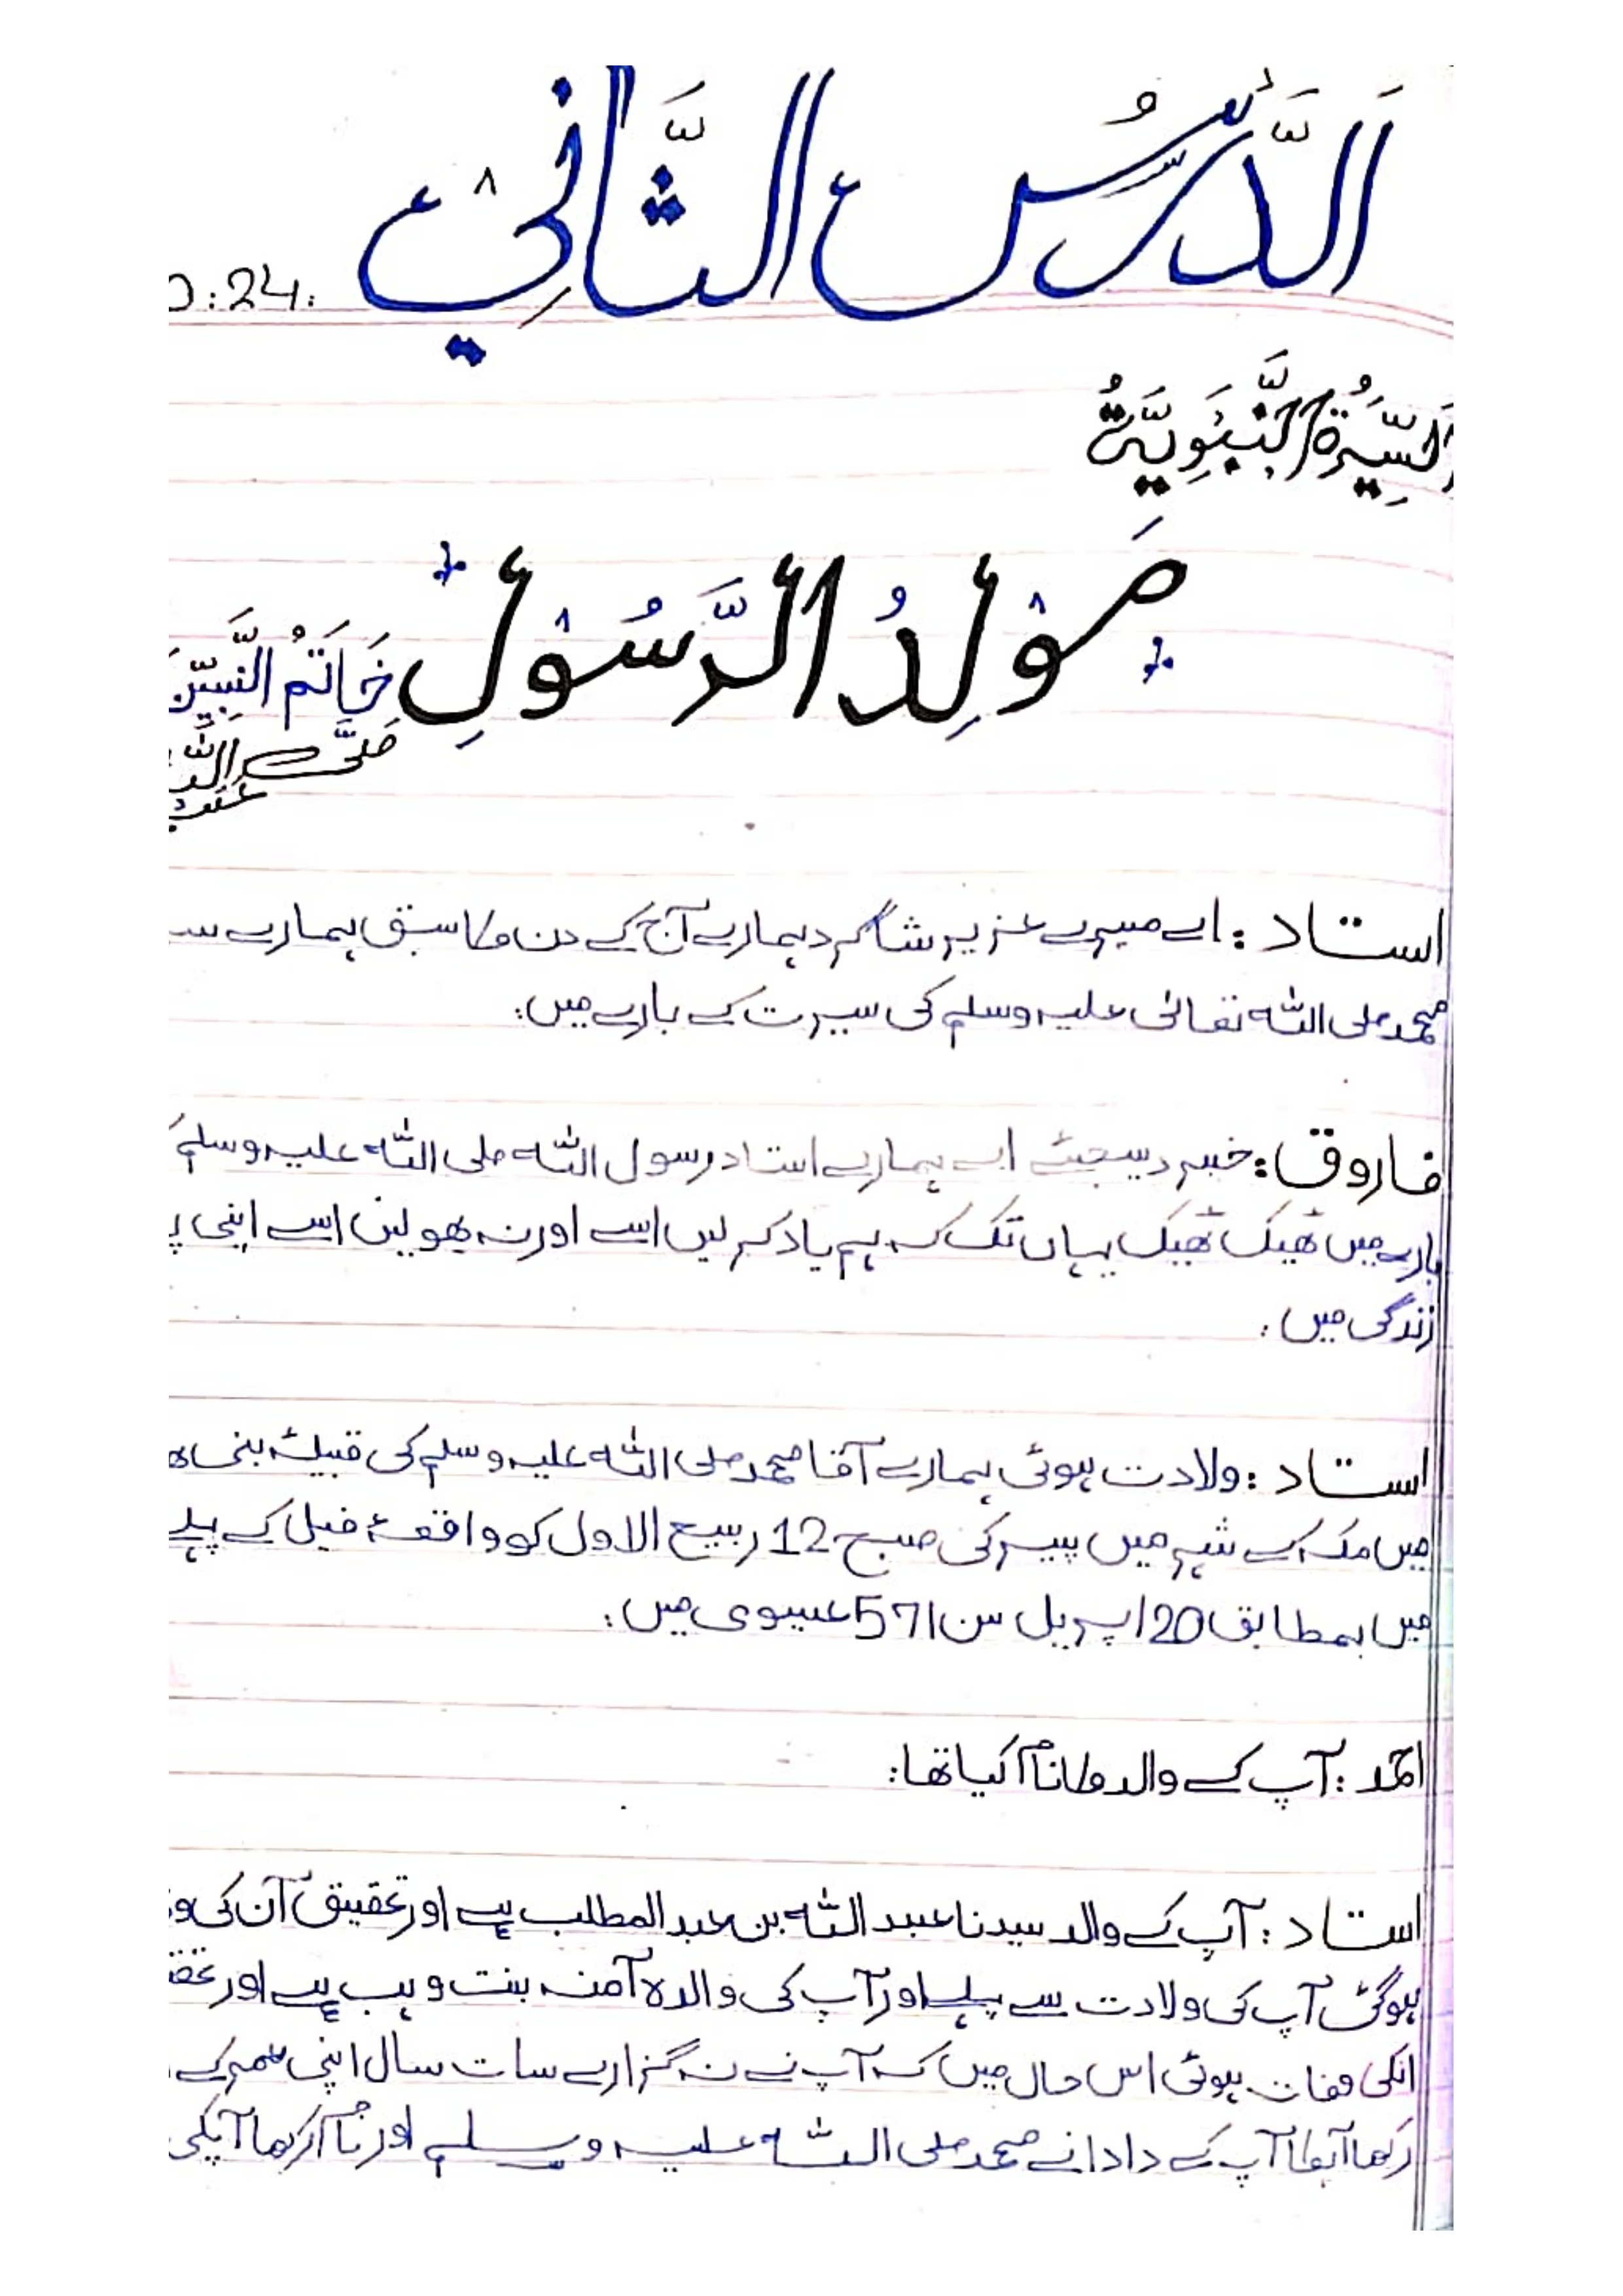 اَلدَّرْسُ الثَّانِيْ
:24:
اَلسِّيْرَةُ النَّبَوِيَّةُ
مَوْلِدُ الرَّسُوْلِ خَاتَمُ النَّبِيّٖنَ
صَلَّى اللّٰه
استاد : اے میرے عزیز شاگرد ہمارے آج کے دن کا سبق ہمارے
محمد صلی اللّٰہ تعالیٰ علیہ وسلم کی سیرت کے بارے میں:
فاروق: خبر دیجئے اے ہمارے استاد رسول اللّٰہ صلی اللّٰہ علیہ وسلم
بارے میں ٹھیک ٹھیک یہاں تک کہ ہم یاد کر لیں اسے اور نہ بھولیں اسے اپنی
زندگی میں :
استاد : ولادت ہوئی ہمارے آقا محمد صلی اللّٰہ علیہ وسلم کی قبیلۂ بنی
میں مکہ کے شہر میں پیر کی صبح 12 ربیع الاول کو واقعۂ فیل کے پہلے
میں بمطابق 20 اپریل سن 571 عیسوی میں :
احمد : آپ کے والد کا نام کیا تھا :
استاد : آپ کے والد سیدنا عبد اللّٰہ بن عبد المطلب ہے اور تحقیق ان کی
ہو گئ آپ کی ولادت سے پہلے اور آپ کی والدہ آمنہ بنت وہب ہے اور
انکی وفات ہوئی اس حال میں کہ آپ نے نہ گزارے سات سال اپنی عمر کے
رکھا آپکا آپ کے دادا نے محمد صلی اللّٰہ علیہ وسلم اور نام رکھا آپکی